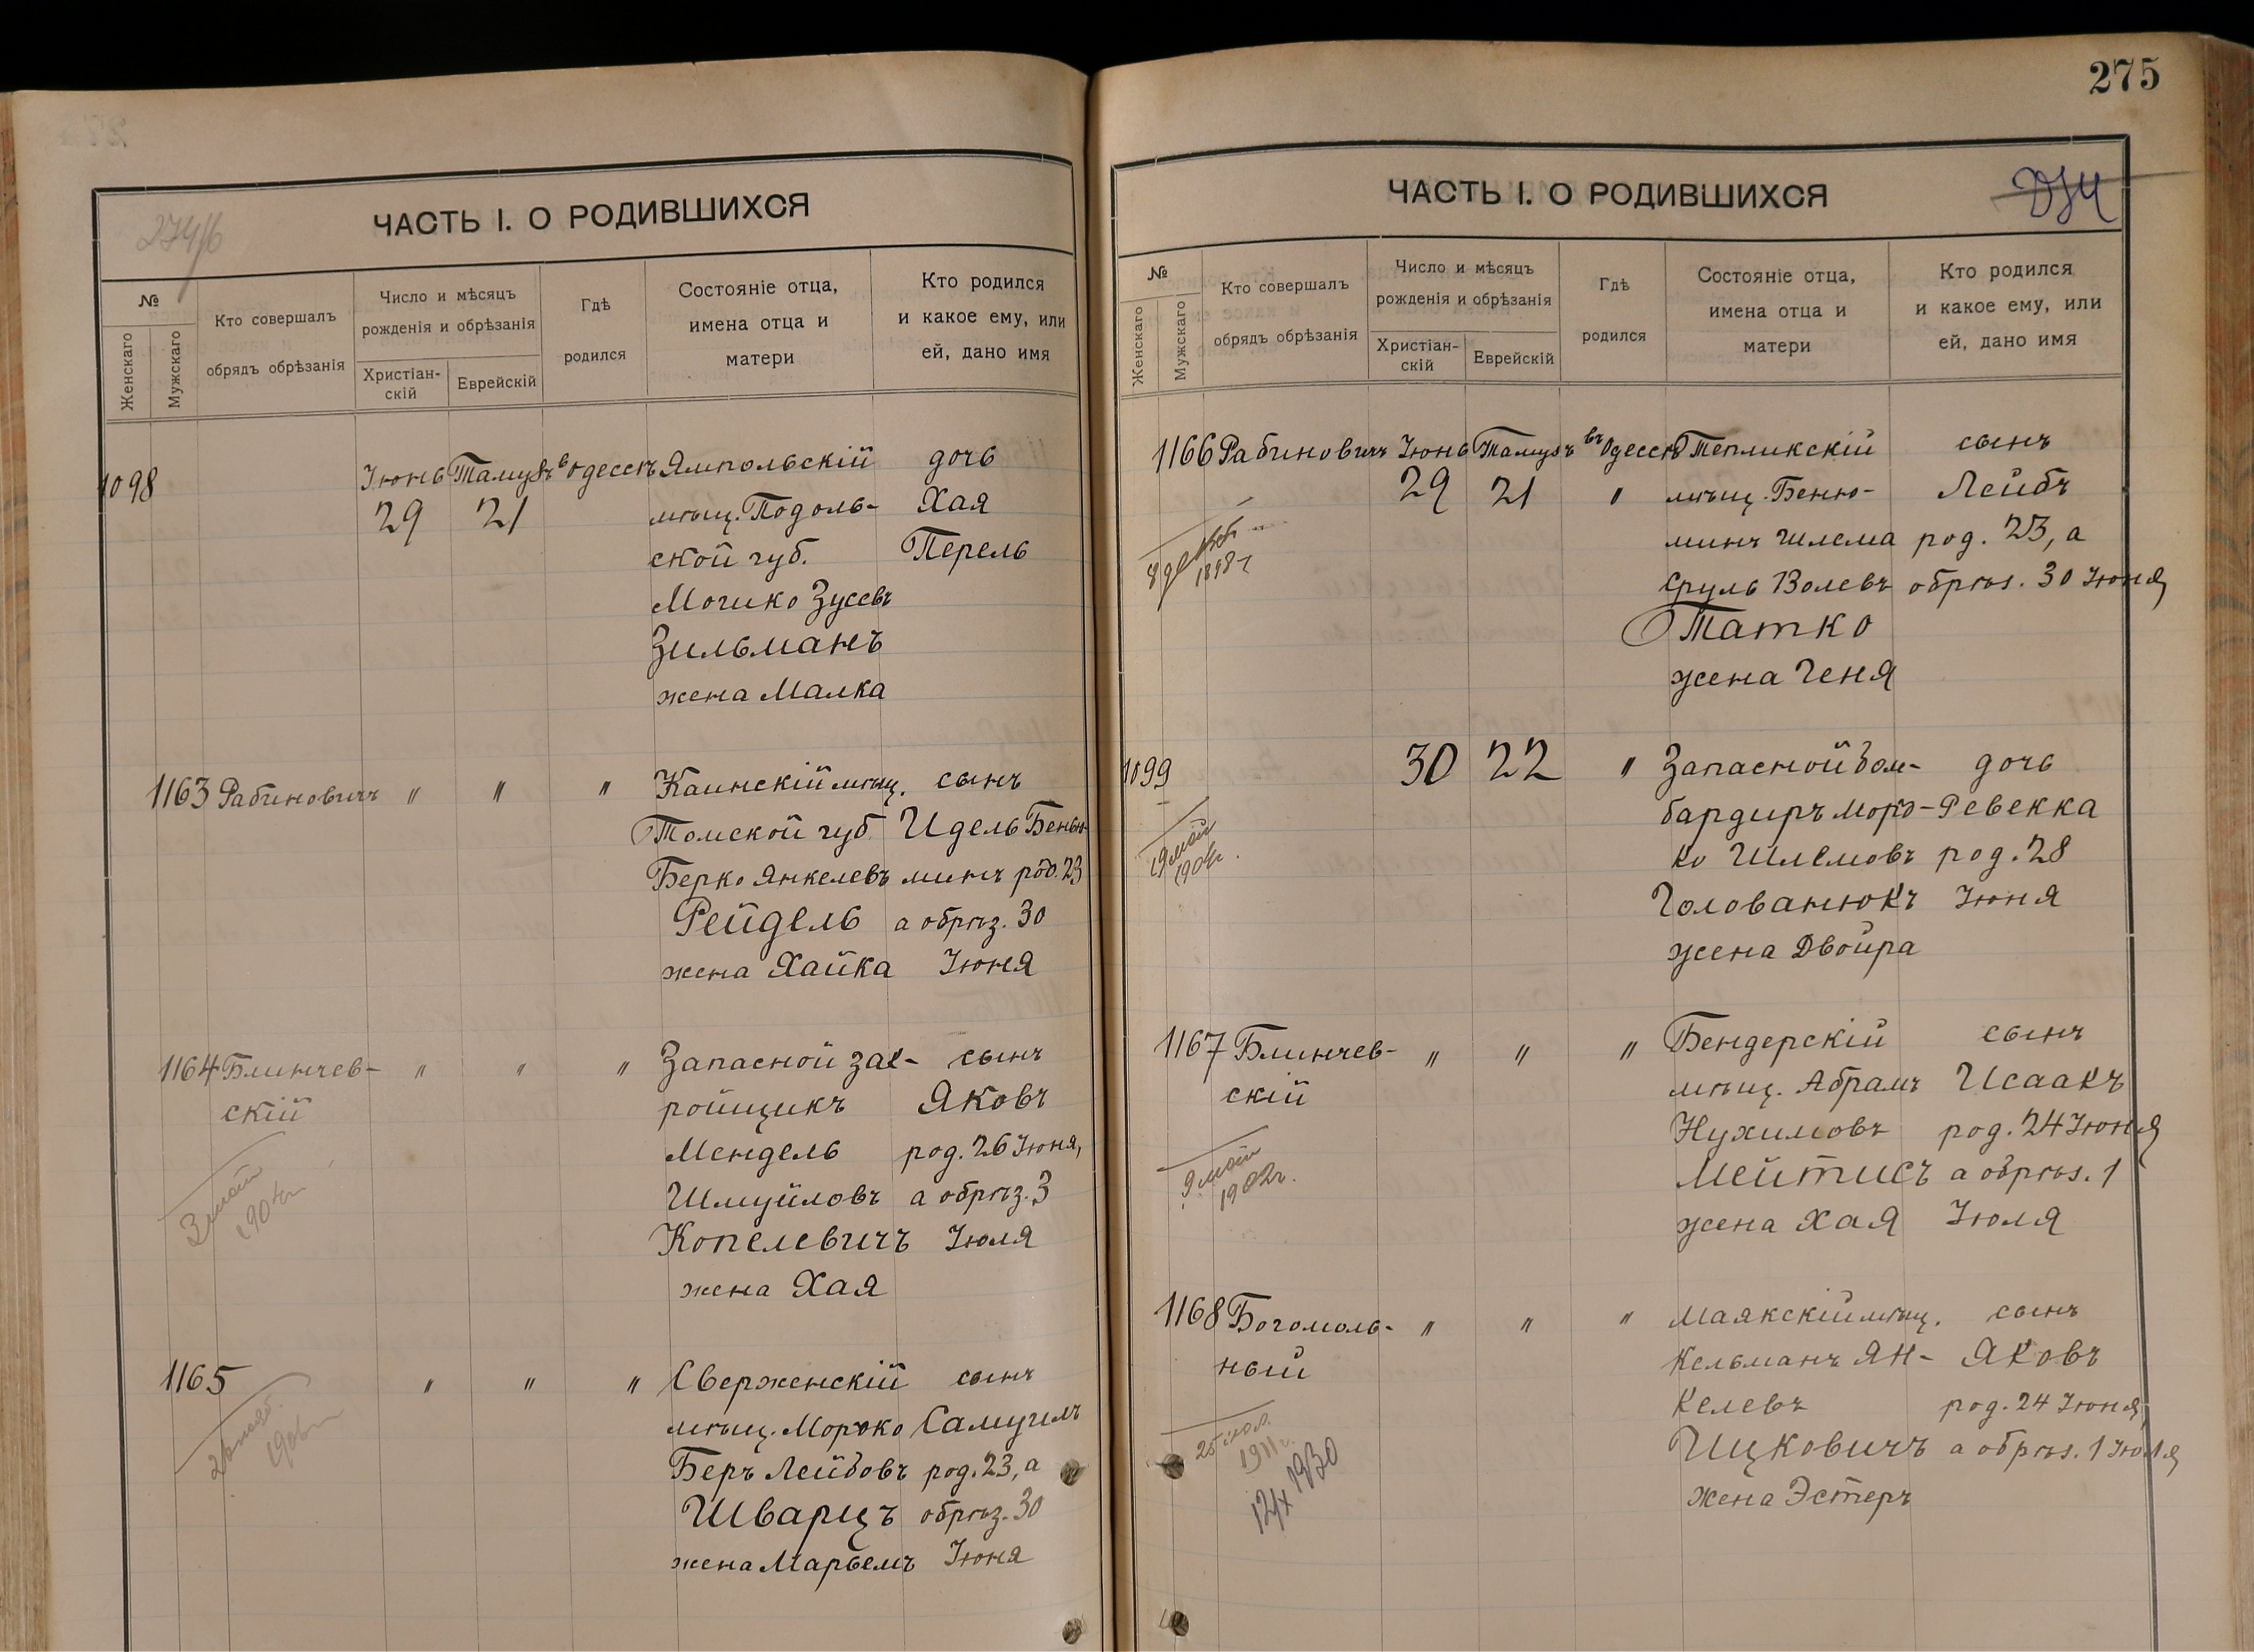 275
274/б
ЧАСТЬ I. О РОДИВШИХСЯ
№
Женскаго
Мужскаго
Кто совершалъ
обрядъ обрѣзанія
Число и мѣсяцъ
рожденія и обрѣзанія
Христіан-
скій
Еврейскій
Гдѣ
родился
Состояніе отца,
имена отца и
матери
Кто родился
и какое ему, или
ей, дано имя
1098 Іюнь Тамузъ в Одессѣ Ямпольскій дочь
29 21 мѣщ. Подоль- Хая
ской губ. Перель
Мошко Зусевъ
Зильманъ
жена Малка
1163 Рабиновичъ " " " Каинскій мѣщ. сынъ
Томской губ. Идель Бенья-
Берко Янкелевъ минъ род. 23
Рейдель а обрѣз. 30
жена Хайка Іюня
1164 Блинчев- " " " Запасной зак- сынъ
скій ройщикъ Яковъ
Мендель род. 26 Іюня,
Шмуйловъ а обрѣз. 3
Копелевичъ Іюля
жена Хая
1165 " " " Сверженскій сынъ
мѣщ. Мордко Самуилъ
Беръ Лейбовъ род. 23, а
Шварцъ обрѣз. 30
жена Марьемъ Іюня
ЧАСТЬ I. О РОДИВШИХСЯ
№
Женскаго
Мужскаго
Кто совершалъ
обрядъ обрѣзанія
Число и мѣсяцъ
рожденія и обрѣзанія
Христіан-
скій
Еврейскій
Гдѣ
родился
Состояніе отца,
имена отца и
матери
Кто родился
и какое ему, или
ей, дано имя
1166 Рабиновичъ Іюнь Тамузъ въ Одессѣ Тепликскій сынъ
29 21 " мѣщ. Беню- Лейбъ
минъ Шлема род. 23, а
Сруль Волевъ обрѣз. 30 Іюня
Татко
жена Геня
1898 г
1099 30 22 " Запасной бом- дочь
бардиръ Мордо- Ревекка
ко Шлемовъ род. 28
Голованюкъ Іюня
жена Двойра
19 май
1904г.
1167 Блинчев- " " " Бендерскій сынъ
скій мѣщ. Абрамъ Исаакъ
Нухимовъ род. 24 Іюня
Мейтисъ а обрѣз. 1
жена Хая Іюля
9 май
1902г.
1168 Богомоль- " " " Маякскій мѣщ. сынъ
ный Кельманъ Ян- Яковъ
келевъ род. 24 Іюня,
Ицковичъ а обрѣз. 1 Іюля
жена Эстеръ
1911 г.
12/х 1930